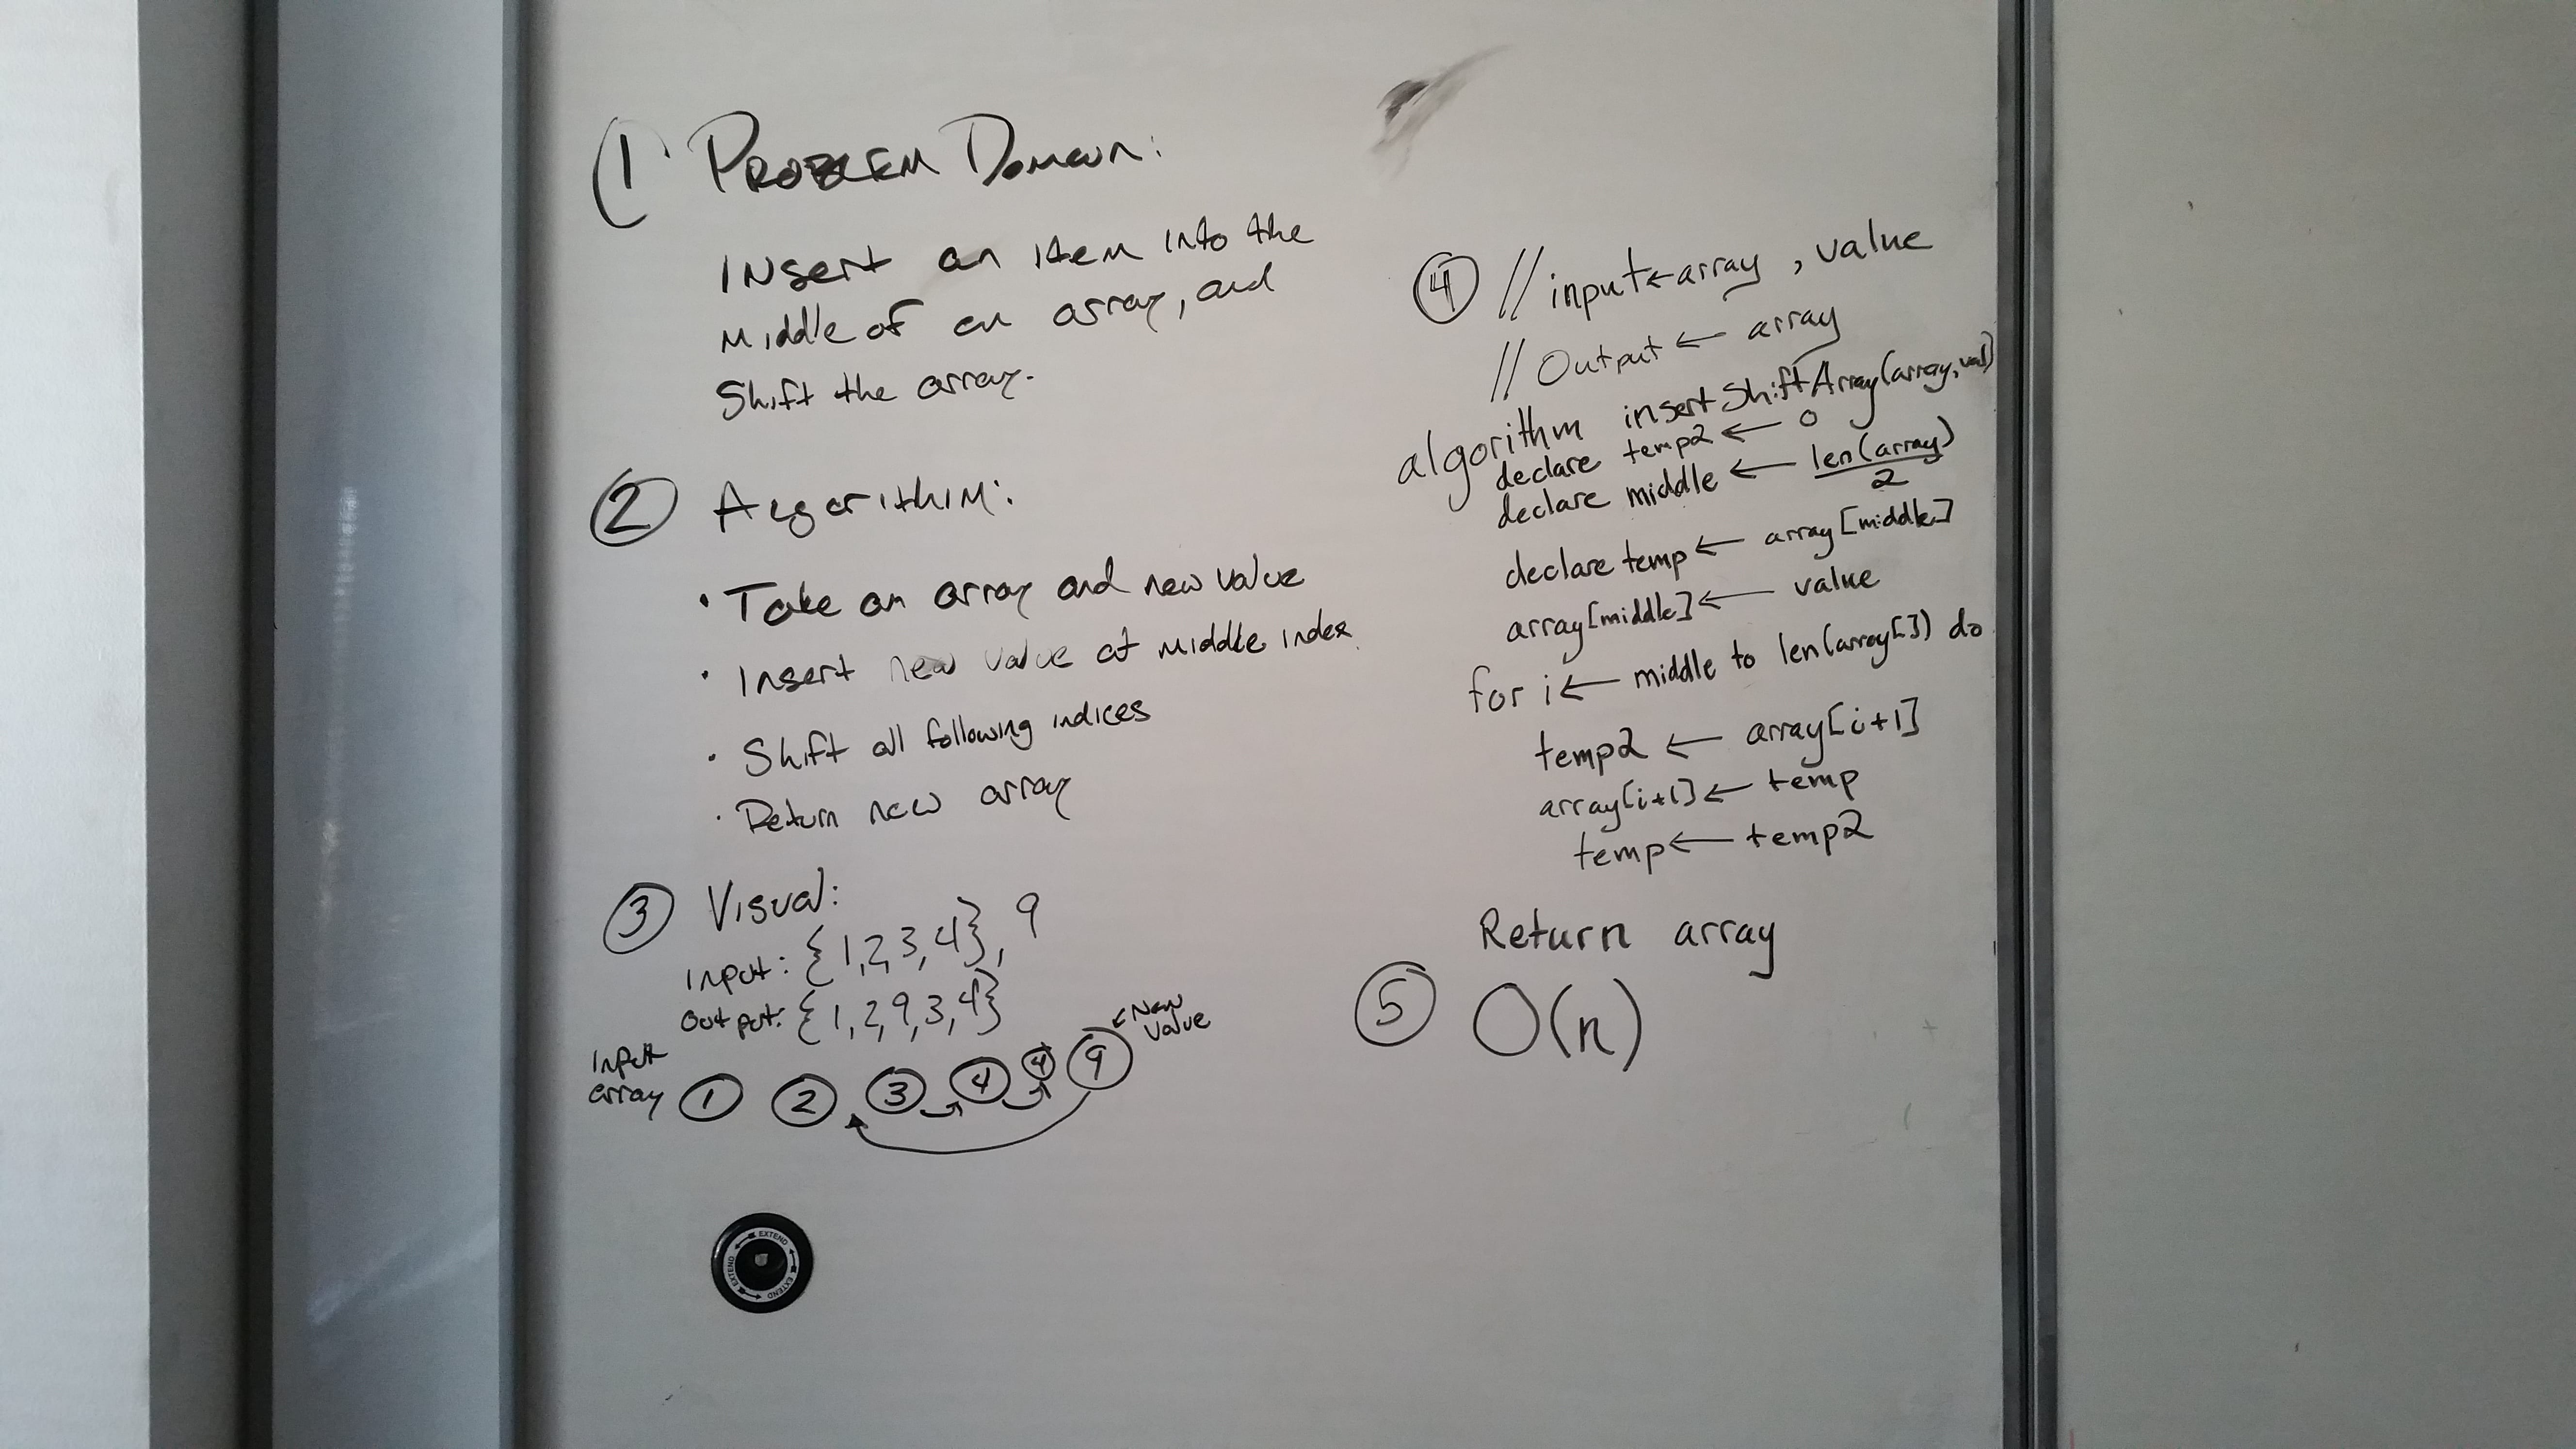 1 PROBLEM Domain:
INsert an item into the
Middle of an array, and
Shift the array.
2 Algorithim:
• Take an array and new value
• Insert new value at middle index
• Shift all following indices
• Return new array
3 Visual:
Input: {1,2,3,4}, 9
Output: {1,2,9,3,4}
Input
array 1 2 3 4 4 9 ← New
Value
EXTEND EXTEND EXTEND EXTEND
4 // input ← array, value
// Output ← array
algorithm insertShiftArray(array, val)
declare temp2 ← 0
declare middle ← len(array)
2
declare temp ← array[middle]
array[middle] ← value
for i ← middle to len(array[]) do
temp2 ← array[i+1]
array[i+1] ← temp
temp ← temp2
Return array
5 O(n)